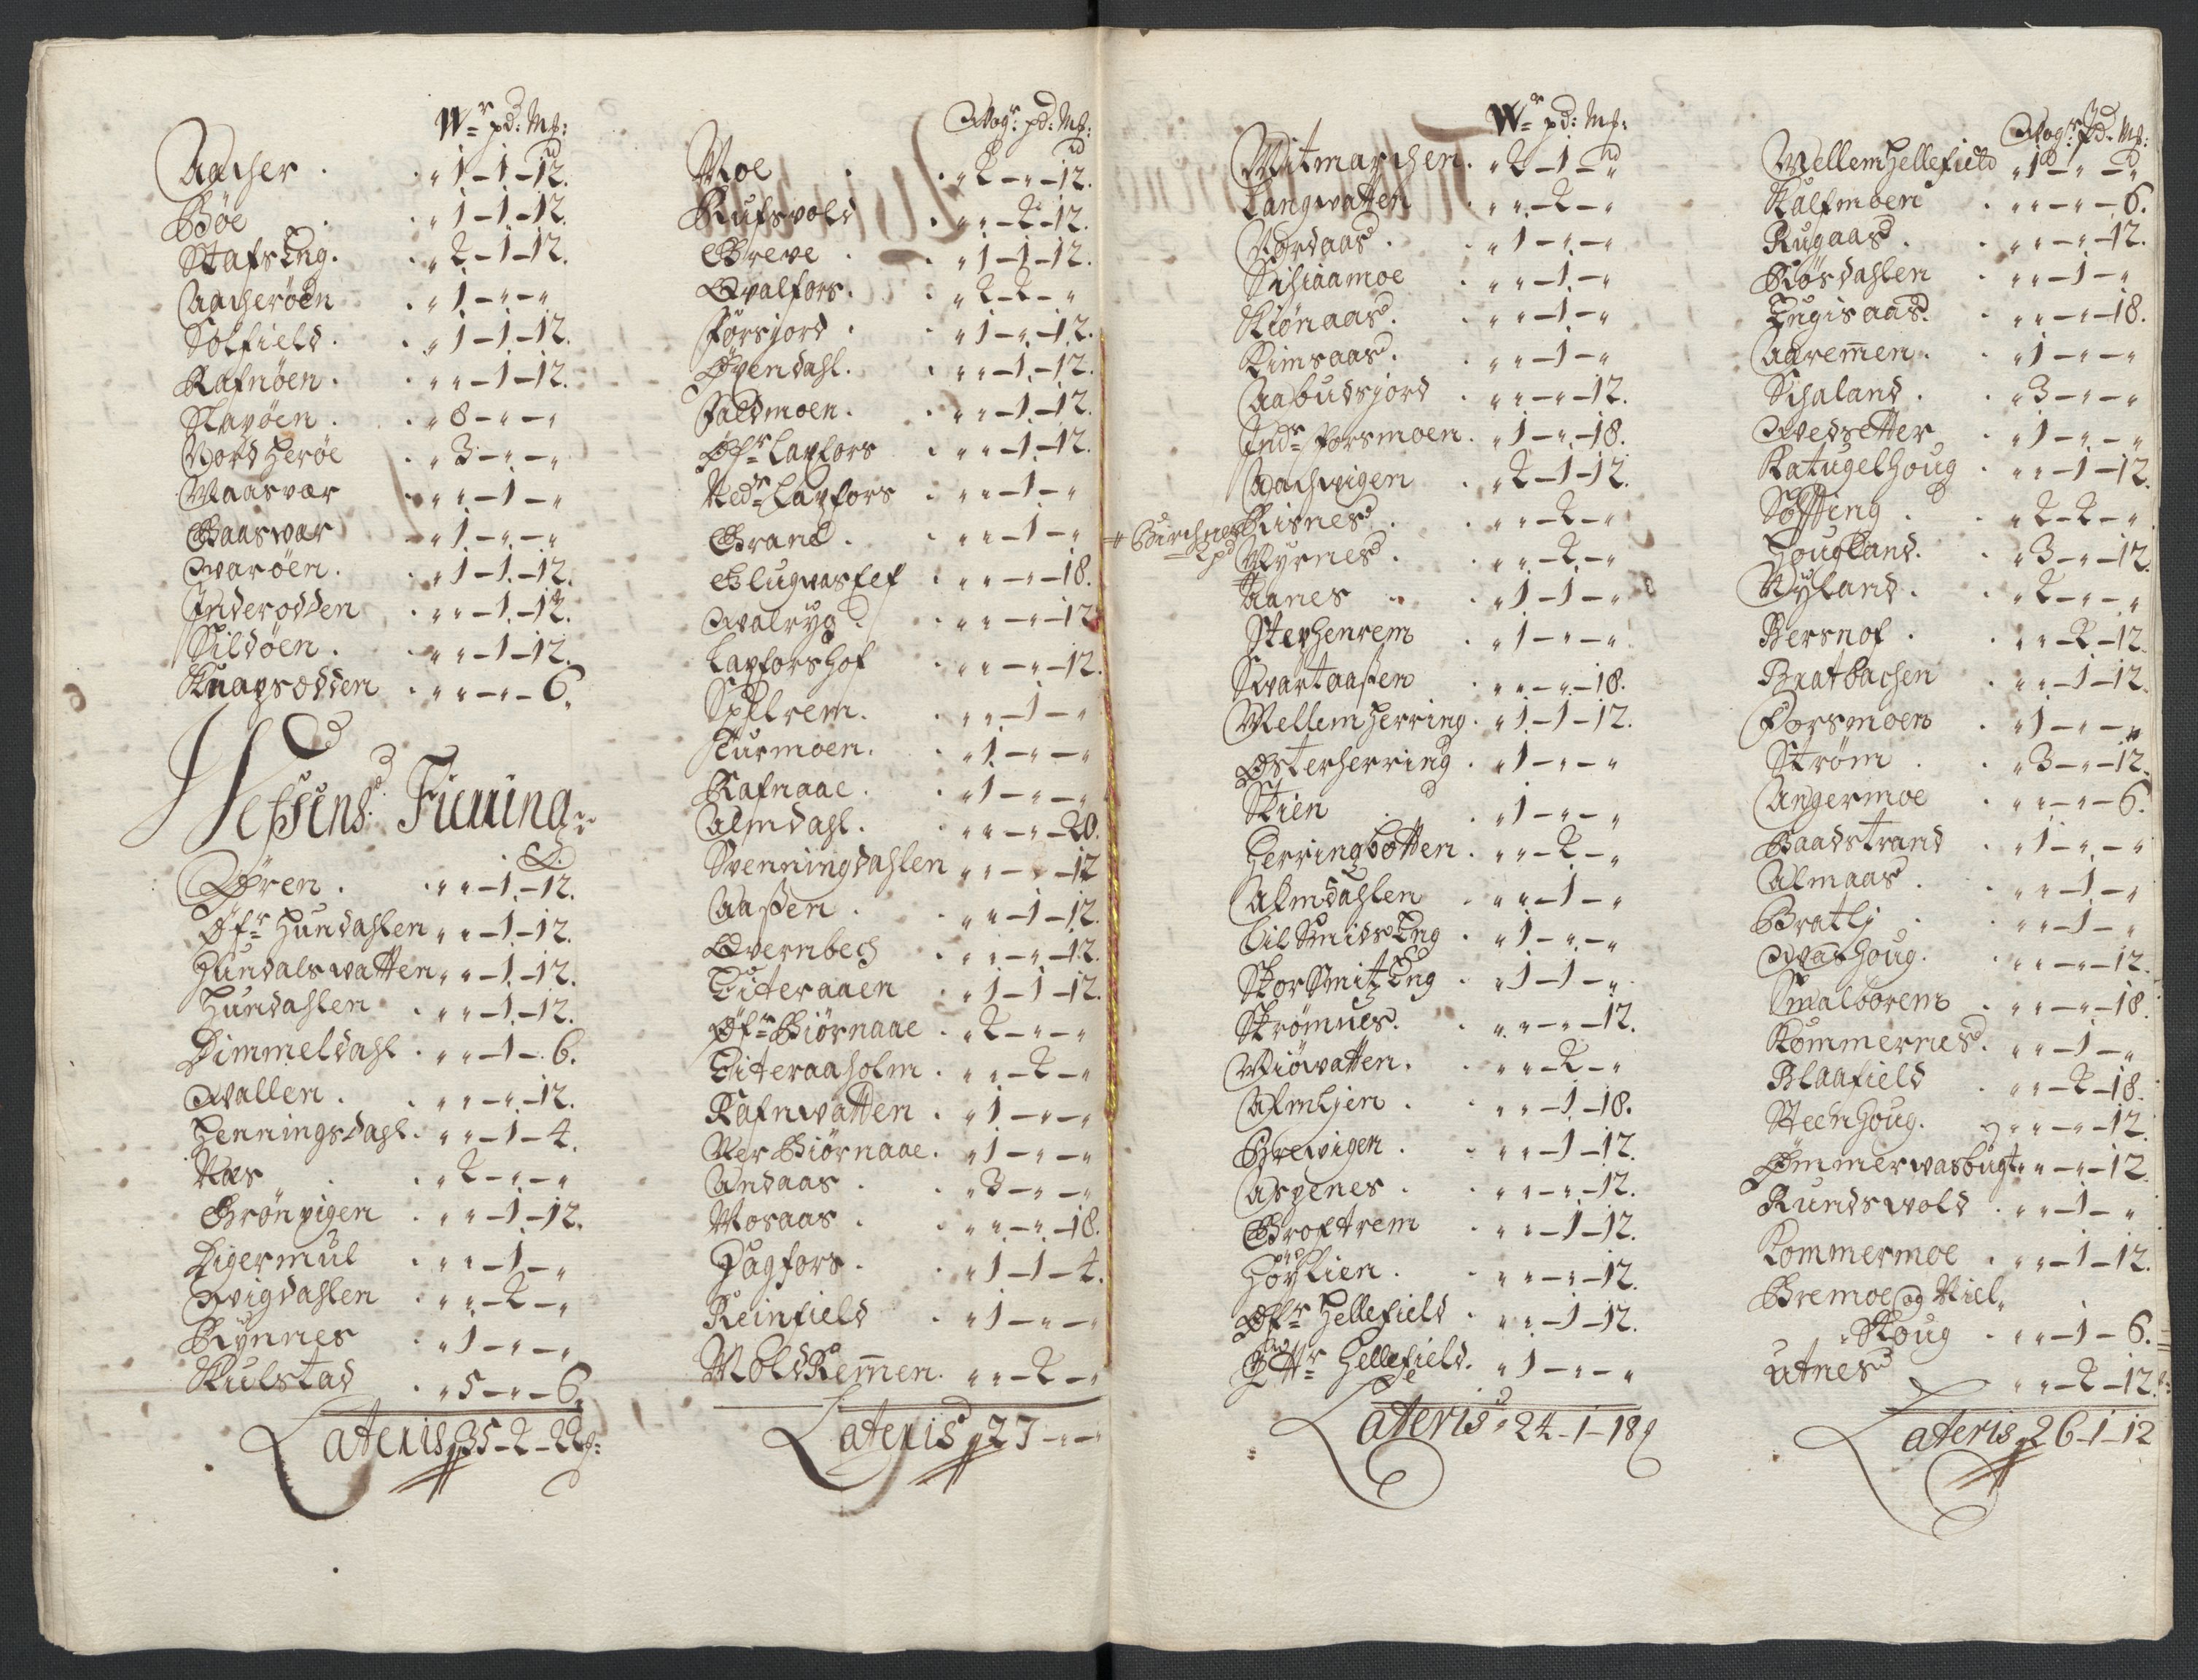 Wr pd: M$:
Aacher . . „ 1 – 1 – 12.
Böe . . „ 1 – 1 – 12.
Stafseng . . „ 2 – 1 – 12.
Aacheröen . „ 1 – „ – „
Solfield . . „ 1 – 1 – 12.
Rafnöen . . „ „ – 1 – 12.
Slapöen . . „ 8 – „ – „
Nord Heröe . „ 3 – „ – „
Maasvær . „ „ – 1 – „
Gaasvær . „ 1 – „ – „
Qvaröen . . „ 1 – 1 – 12.
Inderodden . „ „ – 1 – 12.
Sildöen . . „ „ – 1 – 12.
Knapsodden . „ „ – „ – 6.
Wefsens Fierring
Ören . . „ „ – 1 – 12.
Öfr Hundahlen „ „ – 1 – 12.
Hundalswatten „ „ – 1 – 12.
Hundahlen . „ „ – 1 – 12.
Dimmeldahl . „ „ – 1 – 6.
Qvallen . . „ „ – „ – 12.
Henningsdahl . „ „ – 1 – 4.
Næs . . „ 2 – „ – „
Grönvigen . „ „ – 1 – 12.
Digermul . „ „ – 1 – „
Qvigdahlen . „ „ – 2 – „
Kynnes . „ 1 – „ – „
Kulstad . „ 5 – „ – 6.
Lateris „ 35 – 2 – 22 $:
Wogr: pd: M$:
Moe . . „ 2 – „ – 12.
Rufsvold . „ „ – 2 – 12.
Greve . . „ 1 – 1 – 12.
Qvalfors . . „ 2 – 2 – „
Forsjord . . „ 1 – „ – 12.
Övendahl . . „ „ – 1 – 12.
Faldmoen . . „ „ – 1 – 12.
Öfr Lapfors . „ „ – 1 – 12.
Nedr Lapfors . „ „ – 1 – „
Grane . . „ „ – 1 – „
Glugvasles . „ „ – „ – 18.
Qvalryg . . „ „ – „ – 12
Lapforshof . „ „ – „ – 12.
Spelrem . . „ „ – 1 – „
Turmoen . . „ 1 – „ – „
Rafnaae . . „ 1 – „ – „
Almdahl . . „ „ – „ – 20.
Svenningdahlen „ „ – „ – 12
Aassen . . „ „ – 1 – 12.
Qvernbech . „ „ – „ – 12.
Eiteraaen . „ 1 – 1 – 12.
Öfr Biörnaae . „ 2 – „ – „
Eiteraaholm . „ „ – 2 – „
Rafnwatten . „ 1 – „ – „
Ner Biörnaae . „ 1 – „ – „
Andaas . . „ 3 – „ – „
Mosaas . . „ „ – „ – 18.
Hagfors . . „ 1 – 1 – 4.
Reinfield . „ 1 – „ – „
MoldRem̅en . „ „ – 2 – „
Lateris „ 27 – „ – „
Wr pd: M$:
Mitmarchen . „ 2 – 1 – „
Langwatten . „ „ – 2 – „
Nordaas . . „ 1 – „ – „
Schiaamoe . „ „ – 1 – „
Kiönaas . . „ „ – 1 – „
Kimsaas . . „ „ – 1 – „
Aabudsjord . „ „ – „ – 12.
Indr Forsmoen . „ 1 – „ – 18.
Aachvigen . „ 2 – 1 – 12.
# Birchnes 2 pd
Risnes . . „ „ – 2 – „
Myrnes . . „ „ – 2 – „
# Aanes . . „ 1 – 1 – „
Stephenrem . „ 1 – „ – „
Svartaassen . „ „ – „ – 18.
Mellem Herring . „ 1 – 1 – 12.
Österherring . „ 1 – „ – „
Skien . . „ 1 – „ – „
Herringbotten . „ „ – 2 – „
Almdahlen . „ „ – 1 – „
Lil Smidseng . „ 1 – „ – „
StorSmitzeng . „ 1 – 1 – „
Strömnes . . „ „ – „ – 12.
Miövatten . . „ „ – 2 – „
Almlien . . „ „ – 1 – 18.
Brevigen . . „ „ – 1 – 12.
Aspenes . . „ „ – „ – 12.
Groftrem . „ „ – 1 – 12.
Höylien . . „ „ – „ – 12.
Öfr Hellefield . „ „ – 1 – 12.
Yttr Hellefield . „ 1 – „ – „
Lateris „ 24 – 1 – 18
Wogr: pd: M$:
Mellem Hellefield „ 1 – „ – „
Kalfmoen . „ „ – „ – 6.
Rugaas . . „ „ – „ – 12.
Røsdahlen . „ „ – 1 – „
Engisaas . . „ „ – „ – 18.
Aarem̅en . . „ 1 – „ – „
Schaland . . „ 3 – „ – „
Qvedsetter . „ 1 – „ – „
Ratugelhoug . „ „ – 1 – 12.
Søffting . . „ 2 – 2 – „
Hougland . . „ 3 – „ – 12.
Nyland . . „ 2 – „ – „
Bersnof . . „ „ – 2 – 12.
Bratbachen . „ „ – 1 – 12.
Forsmoen . „ 1 – „ – „
Strøm . . „ 3 – „ – 12.
Angermoe . „ „ – „ – 6.
Baadstrand . „ 1 – „ – „
Almaas . . „ „ – 1 – „
Bratli . . „ „ – 1 – „
Qvashoug . . „ „ – „ – 12.
Smalborem . „ „ – „ – 18.
Kommernes . „ „ – 1 – „
Blaafield . „ „ – 2 – 18.
Steenhoug . „ „ – „ – 12.
Ömmervasbugt „ „ – „ – 12.
Rundswold . „ „ – 1 – „
Kommermoe . „ „ – 1 – 12.
Bremoe og Niel„
„ Skoug . „ „ – 1 – 6.
Utnes „ „ – 2 – 12.
Lateris „ 26 – 1 – 12